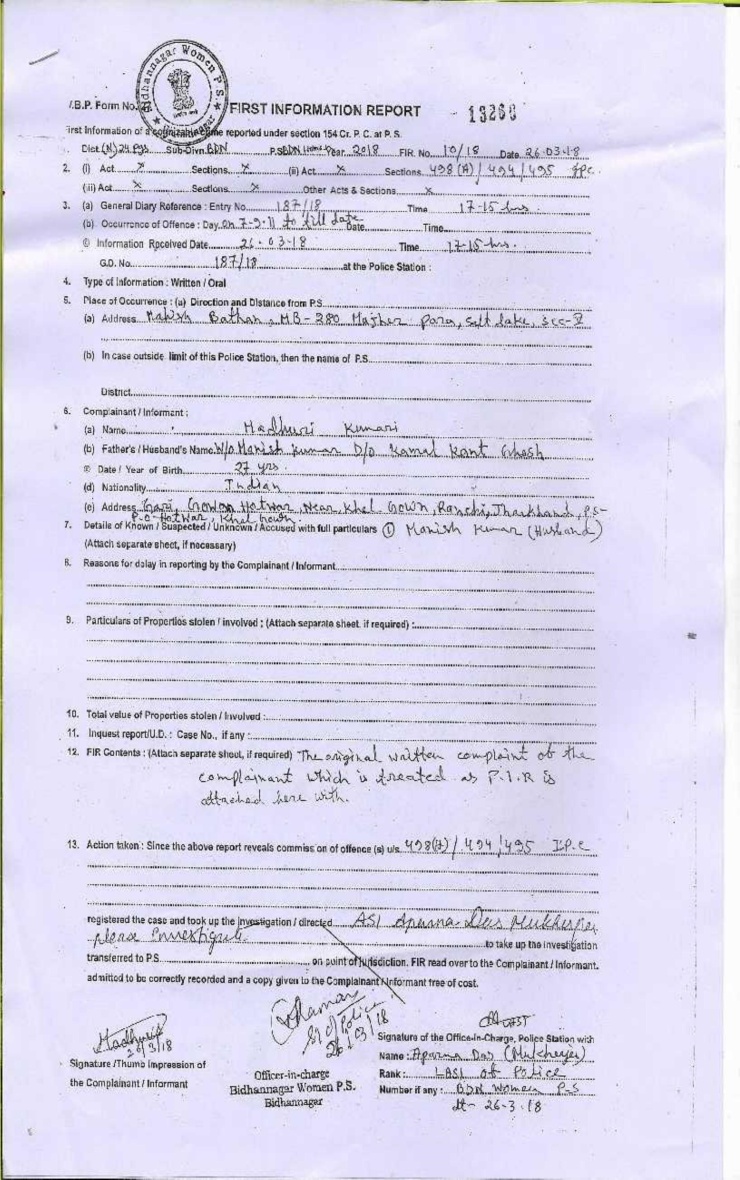 Bidhannagar Women P.S.
I.B.P. Form No. 27
FIRST INFORMATION REPORT - 13260
First Information of a cognizable crime reported under section 154 Cr. P. C. at P. S.
Dist (N) 24 Pgs Sub-Divn. BDN P.S. BDN Women Year 2018 FIR No. 10/18 Date 26-03-18
2. (i) Act X Sections X (ii) Act X Sections 498 (A) / 494 / 495 IPC.
(iii) Act X Sections X Other Acts & Sections X
3. (a) General Diary Reference : Entry No. 187/18 Time 17-15 hrs
(b) Occurrence of Offence : Day On 7-9-11 to till date Date Time
© Information Received Date 26-03-18 Time 17-15 hrs.
G.D. No. 187/18 at the Police Station :
4. Type of Information : Written / Oral
5. Place of Occurrence : (a) Direction and Distance from P.S.
(a) Address Bathan, MB-280 Majher para, Salt Lake, Sec-V
(b) In case outside limit of this Police Station, then the name of P.S.
District
6. Complainant / Informant :
(a) Name Madhuri Kumari
(b) Father's / Husband's Name W/o Manish Kumar D/o Kamal Kant Ghosh
© Date / Year of Birth 27 yrs.
(d) Nationality Indian
(e) Address Hotwar, Near Khel Gown, Ranchi, Jharkhand, P.S-
P-O-Hotwar, Khel Gown.
7. Details of Known / Suspected / Unknown / Accused with full particulars ① Manish Kumar (Husband)
(Attach separate sheet, if necessary)
8. Reasons for delay in reporting by the Complainant / Informant
9. Particulars of Properties stolen / involved ; (Attach separate sheet. if required) :
10. Total value of Properties stolen / Involved :
11. Inquest report/U.D. : Case No., if any :
12. FIR Contents : (Attach separate sheet, if required) The original written complaint of the
complainant which is treated as F.I.R is
attached here with.
13. Action taken : Since the above report reveals commission of offence (s) u/s. 498(A) / 494 / 495 I.P.C
registered the case and took up the investigation / directed ASI Aparna Das Mukherjee
please investigate to take up the investigation
transferred to P.S. on point of jurisdiction. FIR read over to the Complainant / Informant.
admitted to be correctly recorded and a copy given to the Complainant / Informant free of cost.
SI of Police
26/03/18
26/3/18
Signature /Thumb impression of
the Complainant / Informant
Officer-in-charge
Bidhannagar Women P.S.
Bidhannagar
Signature of the Office-in-Charge, Police Station with
Name : Aparna Das (Mukherjee)
Rank : LASI of Police
Number if any : BDN Women P-S
dt- 26-3-18